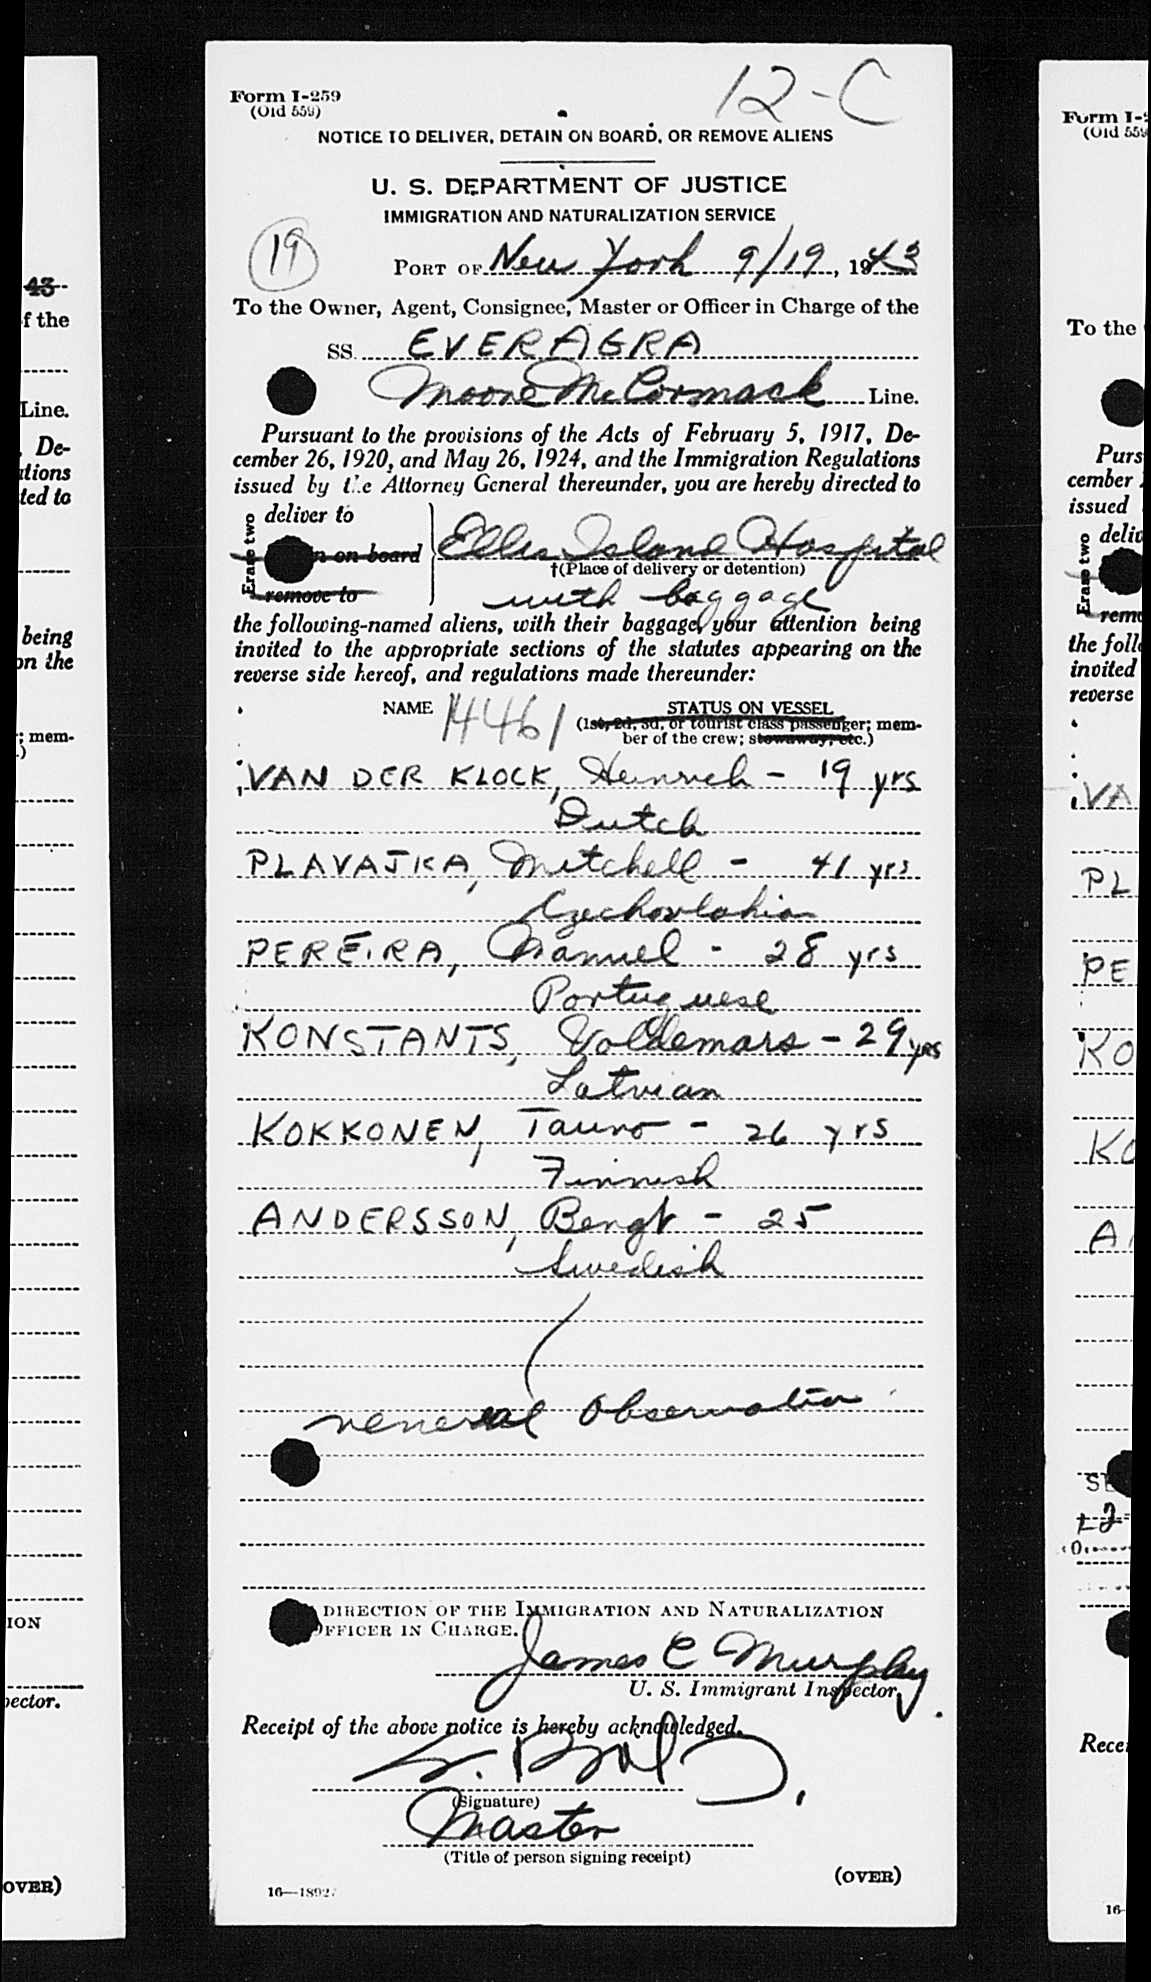 12-C
Form I-259
(Old 559)
NOTICE TO DELIVER, DETAIN ON BOARD, OR REMOVE ALIENS
U. S. DEPARTMENT OF JUSTICE
IMMIGRATION AND NATURALIZATION SERVICE
19
PORT OF New York 9/19, 1943
To the Owner, Agent, Consignee, Master or Officer in Charge of the
SS. EVERAGRA
Moore McCormack Line.
Pursuant to the provisions of the Acts of February 5, 1917, De-
cember 26, 1920, and May 26, 1924, and the Immigration Regulations
issued by the Attorney General thereunder, you are hereby directed to
Erase two
deliver to
n on board
remove to
Ellis Island Hospital
†(Place of delivery or detention)
with baggage
the following-named aliens, with their baggage, your attention being
invited to the appropriate sections of the statutes appearing on the
reverse side hereof, and regulations made thereunder:
NAME 14461 STATUS ON VESSEL
(1st, 2d, 3d, or tourist class passenger; mem-
ber of the crew; stowaway, etc.)
VAN DER KLOCK, Heinrich - 19 yrs
Dutch
PLAVAJKA, Mitchell - 41 yrs
Czechovlakian
PEREIRA, Manuel - 28 yrs
Portuguese
KONSTANTS, Voldemars - 29 yrs
Latvian
KOKKONEN, Tauno - 26 yrs
Finnish
ANDERSSON, Bengt - 25
Swedish
venereal Observation
DIRECTION OF THE IMMIGRATION AND NATURALIZATION
OFFICER IN CHARGE.
James C Murphy
U. S. Immigrant Inspector.
Receipt of the above notice is hereby acknowledged.
(Signature)
Master
(Title of person signing receipt)
(OVER)
16—18927
43
f the
Line.
De-
ations
ted to
being
on the
; mem-
.)
ION
pector.
OVER)
Form I-2
(Old 559
To the
Purs
cember
issued
Erase two
deliv
remo
the foll
invited
reverse
VA
PL
PE
KO
KO
A
Rece
16-